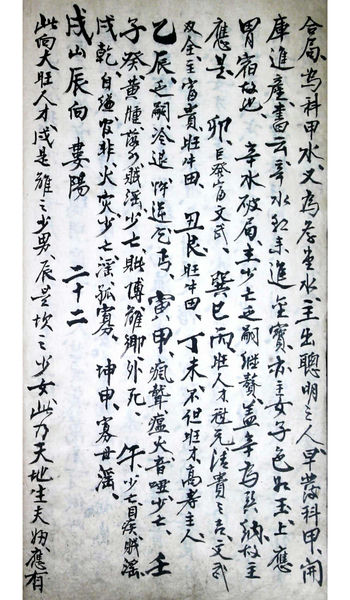 合局、為科甲水、又為養生水、主出聰明之人、早發科甲、開
庫進產、書云辛水朝來進金寶、亦主女子色如玉、上應
胃宿故也、 辛水破局、主少亡乏嗣繼贅、蓋辛為納故主
應是、 卯、巨發富文武、 巽巳丙旺人才科元清貴之吉、文武
双全、主富貴旺牛田、 丑艮旺牛田、 丁未、不但旺才高考主人、
乙辰、乏嗣冷退、忤逆乞丐、 寅甲、瘋聾瘟火音啞少亡、 壬
子癸黃腫、落水賊淫少亡、賭博離鄉外死、 午少亡目疾賊淫
戌乾、自縊官非、火灾少亡淫孤寡、 坤申、寡母淫、
戌山辰向 婁陽 二十二
此向大旺人才戌是離之少男、辰是坎之少女此乃天地生夫婦、應有